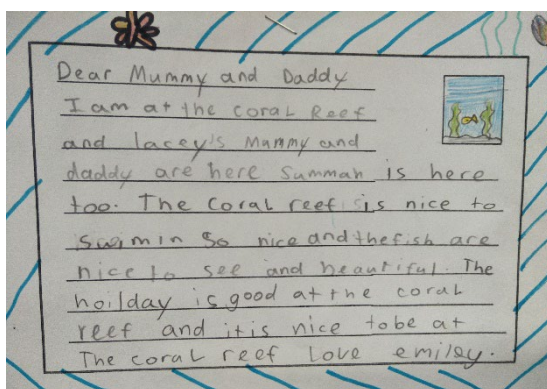 Dear Mummy and Daddy
I am at the coral Reef
and lacey's Mummy and
daddy are here Summah is here
too. The coral reef is is nice to
swim in So nice and the fish are
nice to see and beautiful. The
hoilday is good at the coral
reef and it is nice to be at
The coral reef love emiley.